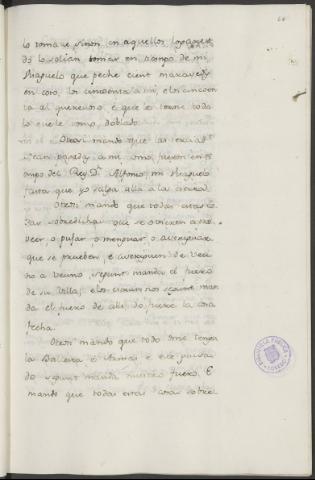 lo toma e sinon en aquellos logares
do lo solian tomar en tiempo de mi
Abuelo que peche cient maravedis
en coto, los cincuenta a mi, e los cincuen
ta al quereloso e que le torne todo
lo que le tomo, doblado.
Otrosi mando que
sean pagadas a mi como fueron en ti
empo del Rey Dn. Alfonso, mi Abuelo
fasta que yo salga alla a la tierra
Otrosi mando que todas estas co
sas sobredichas que se ovieren a pro
veer o pujar o menguar o averiguar
que se prueben, e averiguen de veci
no a vecino, segunt manda el fuero
de su Villa, e los segunt man
da el fuero de alli do fuere la cosa
fecha.
Otrosi mando que todo ome tenga
la e
do segunt manda nuestro fuero. E
mando que todas estas cosas sobre